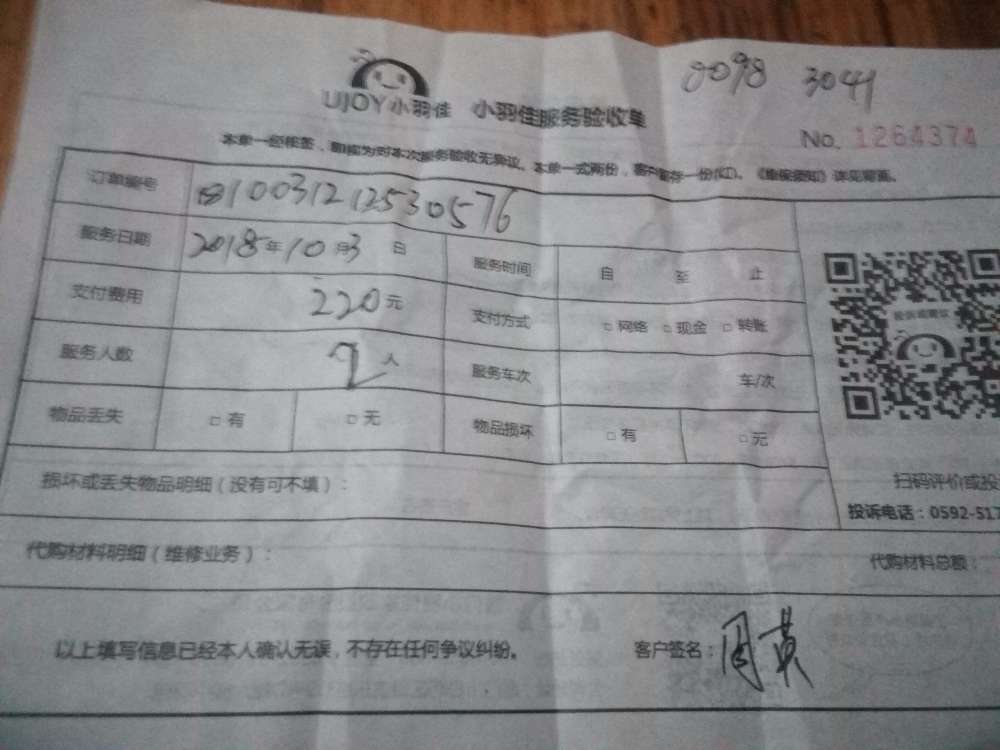 0098 3041
UJOY小羽佳 小羽佳服务验收单
No. 1264374
本单一经签, 即视为对本次服务验收无异议。本单一式两份，客户留存一份(红)。《维保须知》详见背面。
订单编号 181003121253 0576
服务日期 2018年10月3日 服务时间 自 至 止
支付费用 220元 支付方式 □网络 □现金 □转账
服务人数 2人 服务车次 车/次
物品丢失 □有 □无 物品损坏 □有 □无
损坏或丢失物品明细（没有可不填）：
扫码评价或投
投诉电话：0592-517
代购材料明细（维修业务）：
代购材料总额：
以上填写信息已经本人确认无误，不存在任何争议纠纷。 客户签名：周黄